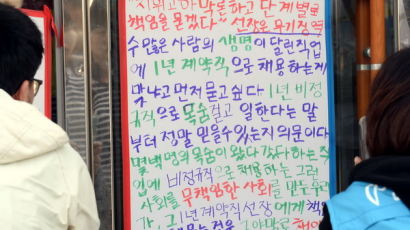 지위고하 막론하고 단계별로
책임을 묻겠다" 선장은 무기징역
수많은 사람의 생명이 달린직업
에 1년 계약직으로 채용하는게
맞냐고 먼저 묻고싶다 1년 비정
규직으로 목숨걸고 일한다는 말
부터 정말 믿을수있는지 의문이다
몇백명의 목숨이 왔다갔다하는 직
업에 비정규직으로 채용하는 그러
사회를 무책임한 사회를 만든우리
가 그 1년계약직선장에게 책